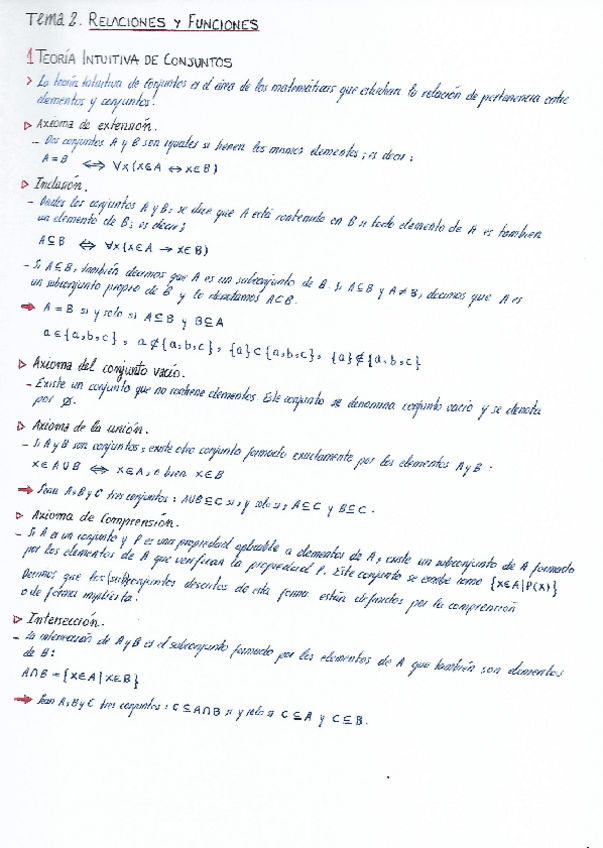 Tema 2. RELACIONES Y FUNCIONES
1 TEORÍA INTUITIVA DE CONJUNTOS
> La teoría intuitiva de conjuntos es el área de las matemáticas que estudian la relación de pertenencia entre
elementos y conjuntos.
▷ Axioma de extensión.
- Dos conjuntos A y B son iguales si tienen los mismos elementos; es decir:
A = B ⟺ ∀x(x∈A ↔ x∈B)
▷ Inclusión.
- Dados los conjuntos A y B; se dice que A está contenido en B si todo elemento de A es también
un elemento de B; es decir;
A⊆B ⟺ ∀x(x∈A → x∈B)
- Si A⊆B, también decimos que A es un subconjunto de B. Si A⊆B y A≠B, decimos que A es
un subconjunto propio de B y lo denotamos A⊂B.
➡ A = B si y solo si A⊆B y B⊆A
a∈{a,b,c}, a⊄{a,b,c}, {a}⊂{a,b,c}, {a}∉{a,b,c}
▷ Axioma del conjunto vacío.
- Existe un conjunto que no contiene elementos. Este conjunto se denomina conjunto vacío y se denota
por ∅.
▷ Axioma de la unión.
- Si A y B son conjuntos, existe otro conjunto formado exactamente por los elementos A y B:
x∈A∪B ⟺ x∈A, o bien x∈B
➡ Sean A, B y C tres conjuntos: A∪B⊆C si, y solo si, A⊆C y B⊆C.
▷ Axioma de Comprensión.
- Si A es un conjunto y P es una propiedad aplicable a elementos de A, existe un subconjunto de A formado
por los elementos de A que verifican la propiedad P. Este conjunto se escribe como {x∈A|P(x)}
Decimos que los (sub)conjuntos descritos de esta forma están definidos por la comprensión
o de forma implícita.
▷ Intersección.
- La intersección de A y B es el subconjunto formado por los elementos de A que también son elementos
de B:
A∩B = {x∈A|x∈B}
➡ Sean A, B y C tres conjuntos: C⊆A∩B si y solo si C⊆A y C⊆B.